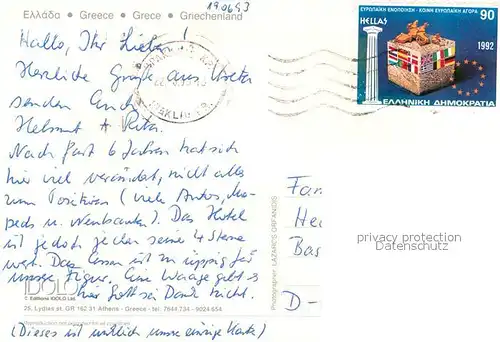 Ελλάδα • Greece • Grece • Griechenland
19.06.93
Hallo, Ihr Lieben!
Herzliche Grüße aus Kreta
senden Euch
Helmut + Rita.
Nach fast 6 Jahren hat sich
hier viel verändert, nicht alles
zum Positiven (viele Autos, Mo-
peds u. Neubauten). Das Hotel
ist jedoch jeden seiner 4 Sterne
wert. Das Essen ist zu üppig für
unsere Figur. Eine Waage gibt es
hier Gott sei Dank nicht.
IDOLO
© Editions IDOLO Ltd.
25, Lygias st. GR 162 31 Athens - Greece - tel. 7644 734 - 9024 654
(Dieses ist wirklich unsere einzige Karte)
ΕΥΡΩΠΑΪΚΗ ΕΝΟΠΟΙΗΣΗ - ΚΟΙΝΗ ΕΥΡΩΠΑΪΚΗ ΑΓΟΡΑ 90
HELLAS
1992
ΕΛΛΗΝΙΚΗ ΔΗΜΟΚΡΑΤΙΑ
Photographer: LAZAROS ORFANIDIS
Fam
He
Bas
D-
privacy protection
Datenschutz